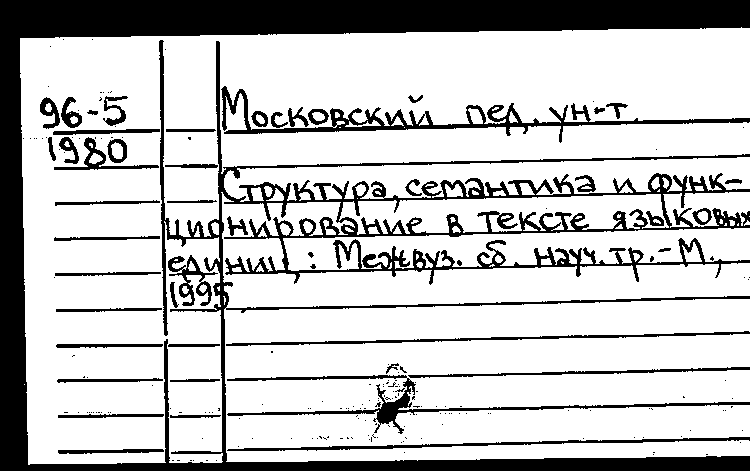 96-5
1980
Московский пед. ун-т.
Структура, семантика и функ-
ционирование в тексте языковых
единиц,: Межвуз. сб. науч. тр.-М.,
1995